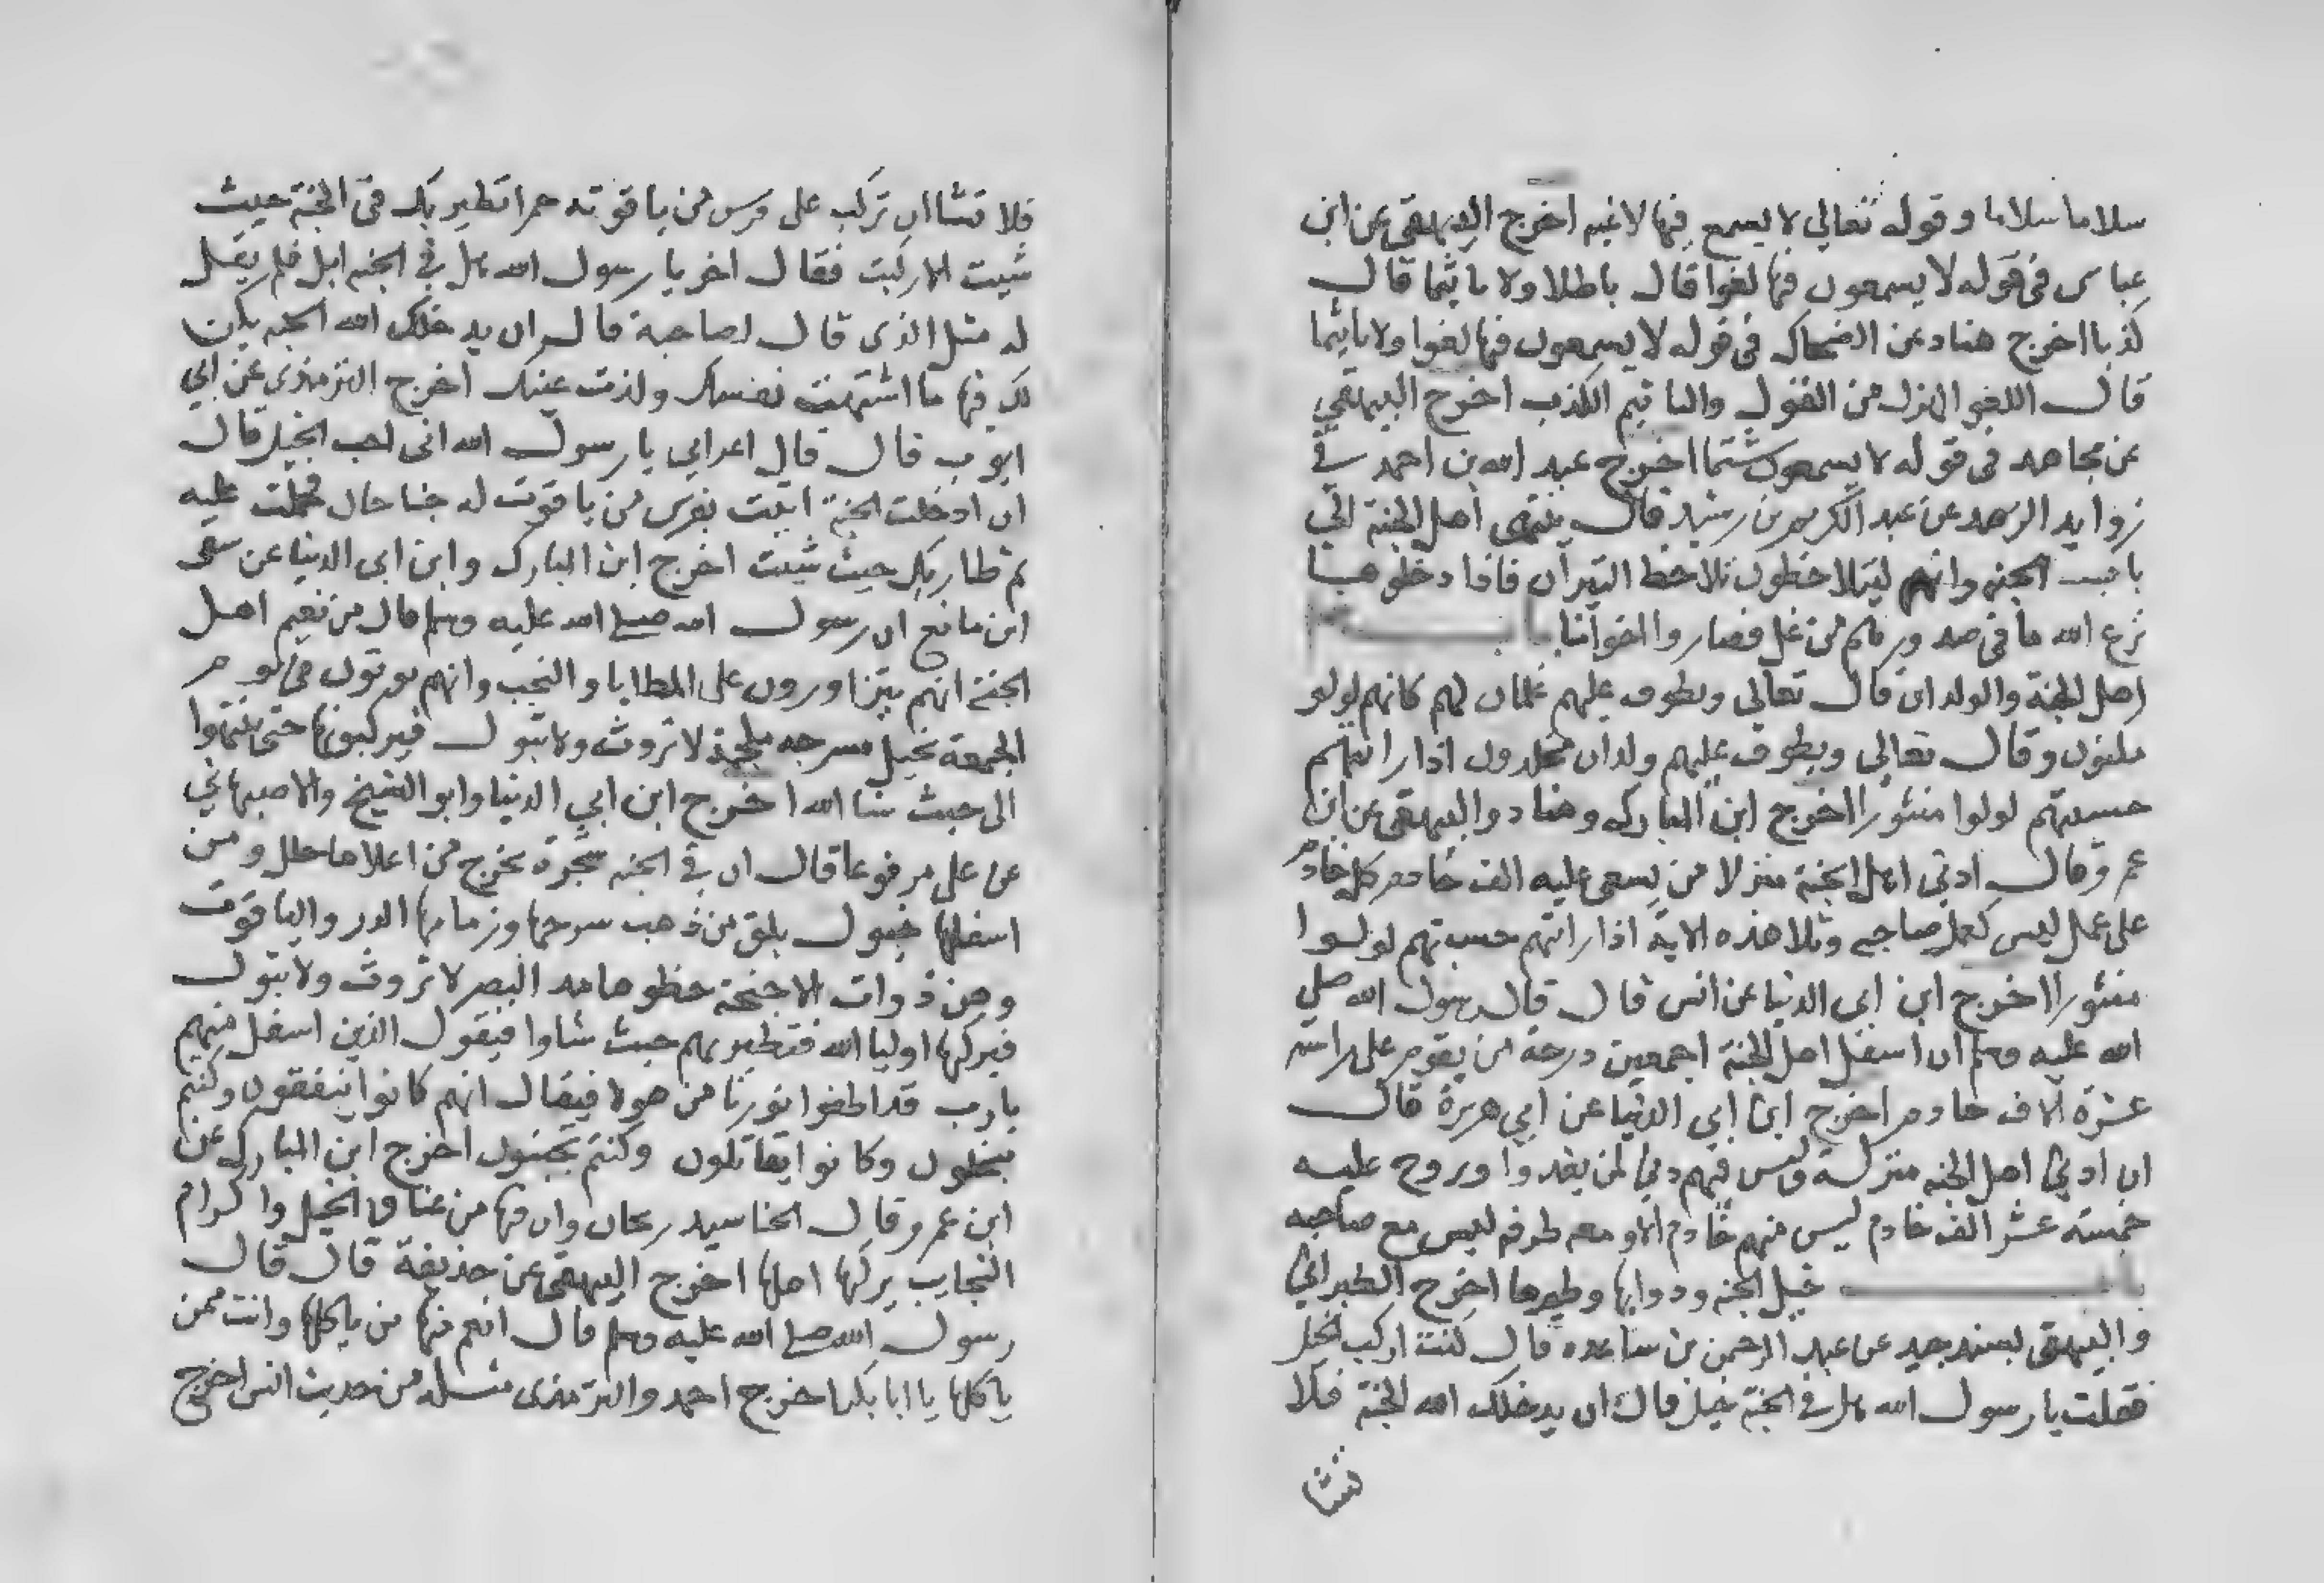 سلاما سلاما وقوله تعالي لا يسمع فيها لاغيه اخرج البيهقي عن ابن
عباس في قوله لا يسمعون فيها لغوا قال باطلا ولا ماثيما قال
كذبا اخرج هناد عن الضحاك في قوله لا يسمعون فيها لغوا ولا تاثيما
قال اللغو الهزل من القول والتاثيم الكذب اخرج البيهقي
عن مجاهد في قوله لا يسمعون شتما اخرج عبد الله بن احمد في
زوايد الزهد عن عبد الكريم بن رشيد قال ينتهى اهل الجنة الي
باب الجنه وانهم ليتلاحظون تلاحظ النيران فاذا دخلوها
نزع الله ما في صدورهم من غل فصاروا اخوانا باب
اهل الجنة والولدان قال تعالي ويطوف عليهم غلمان لهم كانهم لولو
مكنون وقال تعالي ويطوف عليهم ولدان مخلدون اذا رايتهم
حسبتهم لولوا منثورا اخرج ابن المبارك وهناد والبيهقي عن ابن
عمر وقال ادني اهل الجنة منزلا من يسعى عليه الف خادم كل خادم
على عمل ليس كعمل صاحبه وتلا هذه الاية اذا رايتهم حسبتهم لولوا
منثورا اخرج ابن ابي الدنيا عن انس قال قال رسول الله صلي
الله عليه وسلم ان اسفل اهل الجنة اجمعين درجة من يقوم على راسه
عشرة الاف خادم اخرج ابن ابي الدنيا عن ابي هريرة قال
ان ادني اهل الجنه منزلة وليس فيهم دني لمن يغدوا ويروح عليه
خمسة عشر الف خادم ليس منهم خادم الا ومعه طرفه ليس مع صاحبه
باب خيل الجنه ودوابها وطيرها اخرج الطبراني
والبيهقي بسند جيد عن عبد الرحمن بن ساعده قال كنت اركب الخيل
فقلت يا رسول الله هل في الجنة خيل قال ان يدخلك الله الجنة فلا
تشا
فلا تشا ان تركب على فرس من ياقوته حمرا تطير بك في الجنة حيث
شيت الا ركبت فقال اخر يا رسول الله هل في الجنه ابل فلم يقل
له مثل الذى قال لصاحبة قال ان يدخلك الله الجنه يكن
لك فيها ما اشتهت نفسك ولذت عينك اخرج الترمذى عن ابي
ايوب قال قال اعرابي يا رسول الله اني احب الخيل قال
ان ادخلت الجنة اتيت بفرس من ياقوت له جناحان فحملت عليه
ثم طار بك حيث شيت اخرج ابن المبارك وابن ابى الدنيا عن شفى
ابن ماتع ان رسول الله صلى الله عليه وسلم قال من نعيم اهل
الجنة انهم يتزاورون على المطايا والنجب وانهم يوتون في يوم
الجمعة بخيل مسرجه ملجمة لا تروث ولا تبول فيركبونها حتى ينتهوا
الى حيث شا الله اخرج ابن ابي الدنيا وابو الشيخ والاصبهاني
عن على مرفوعا قال ان في الجنه شجرة يخرج من اعلاها حلل ومن
اسفلها خيول بلق من ذهب سرجها وزمامها الدر والياقوت
وهن ذوات الاجنحة خطوها مد البصر لا تروث ولا تبول
فيركبها اوليا الله فتطير بهم حيث شاوا فيقول الذين اسفل منهم
يا رب قد اطفوا نورنا من هولا فيقال انهم كانوا ينفقون وكنتم
تبخلون وكانوا يقاتلون وكنتم تجبنون اخرج ابن المبارك عن
ابن عمر وقال الحنا سيد ريحان وان فيها من عناق الخيل وكرام
النجايب يركبها اهلها اخرج البيهقي عن حذيفة قال قال
رسول الله صلى الله عليه وسلم قال انعم منها من ياكلها وانت ممن
ياكلها يا ابا بكر اخرج احمد والترمذى مثله من حديث انس اخرج